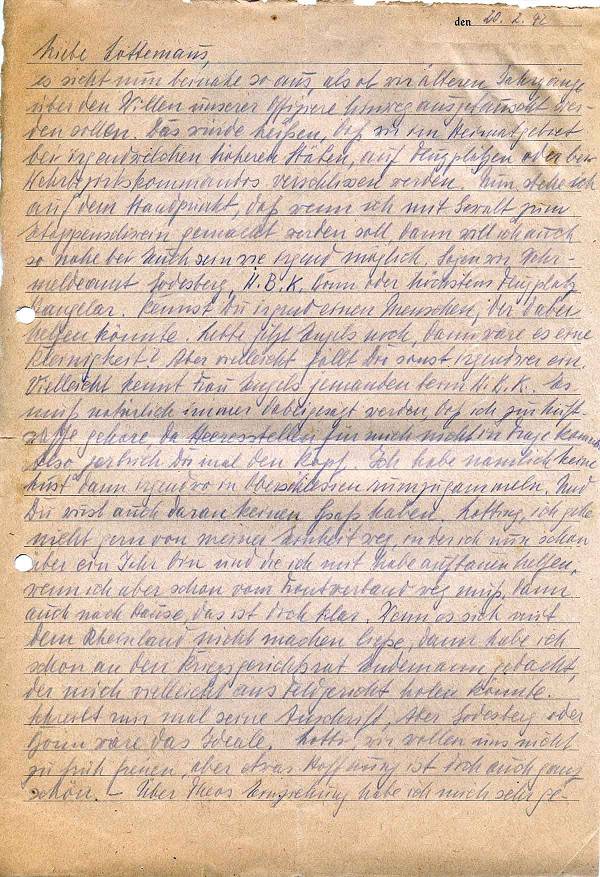 den 20. 2. 42
Liebe Lottemaus,
es sieht nun beinahe so aus, als ob wir älteren Jahrgänge
über den Willen unserer Offiziere hinweg ausgetauscht wer-
den sollen. Das würde heißen, daß wir im Heimatgebiet
bei irgendwelchen höheren Stäben, auf Flugplätzen oder bei
Wehrbezirkskommandos verschlissen werden. Nun stehe ich
auf dem Standpunkt, daß wenn ich mit Gewalt zum
Etappenschwein gemacht werden soll, dann will ich auch
so nahe bei Euch sein wie irgend möglich. Sagen wir Wehr-
meldeamt Godesberg, W.B.K. Bonn oder höchstens Flugplatz
Hangelar. Kennst Du irgend einen Menschen, der dabei
helfen könnte. Lebte jetzt Engels noch, dann wäre es eine
Kleinigkeit! Aber vielleicht fällt Dir sonst irgendwer ein.
Vielleicht kennt Frau Engels jemanden beim W.B.K.. Es
muß natürlich immer dabeigesagt werden daß ich zur Luft-
waffe gehöre da Heeresstellen für mich nicht in Frage kommen
Also zerbrich Dir mal den Kopf. Ich habe nämlich keine
Lust dann irgendwo in Oberschlesien rumzugammeln. Und
Du wirst auch daran keinen Spaß haben. Lotting, ich gehe
nicht gern von meiner Einheit weg, in der ich nun schon
über ein Jahr bin und die ich mit habe aufbauen helfen,
wenn ich aber schon vom Frontverband weg muß, dann
auch nach Hause, das ist doch klar. Wenn es sich mit
dem Rheinland nicht machen ließe, dann habe ich
schon an den Kriegsgerichtsrat gedacht,
der mich vielleicht ans Feldgericht holen könnte.
Schreibt mir mal seine Anschrift. Aber Godesberg oder
Bonn wäre das Ideale. Lotte, wir wollen uns nicht
zu früh freuen, aber etwas Hoffnung ist doch auch ganz
schön. – Über Theos Einziehung habe ich mich sehr ge-